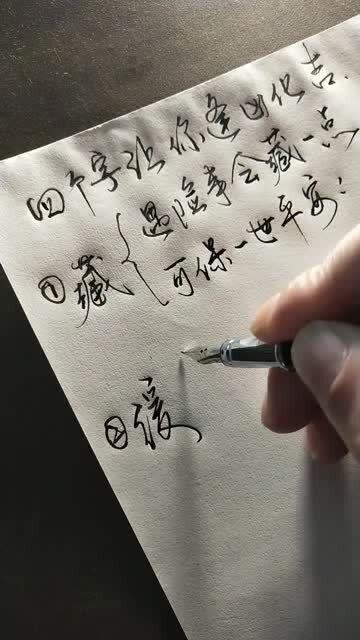 四个字让你逢凶化吉.
①藏{遇险事会藏一点
可保一世平安；
②缓